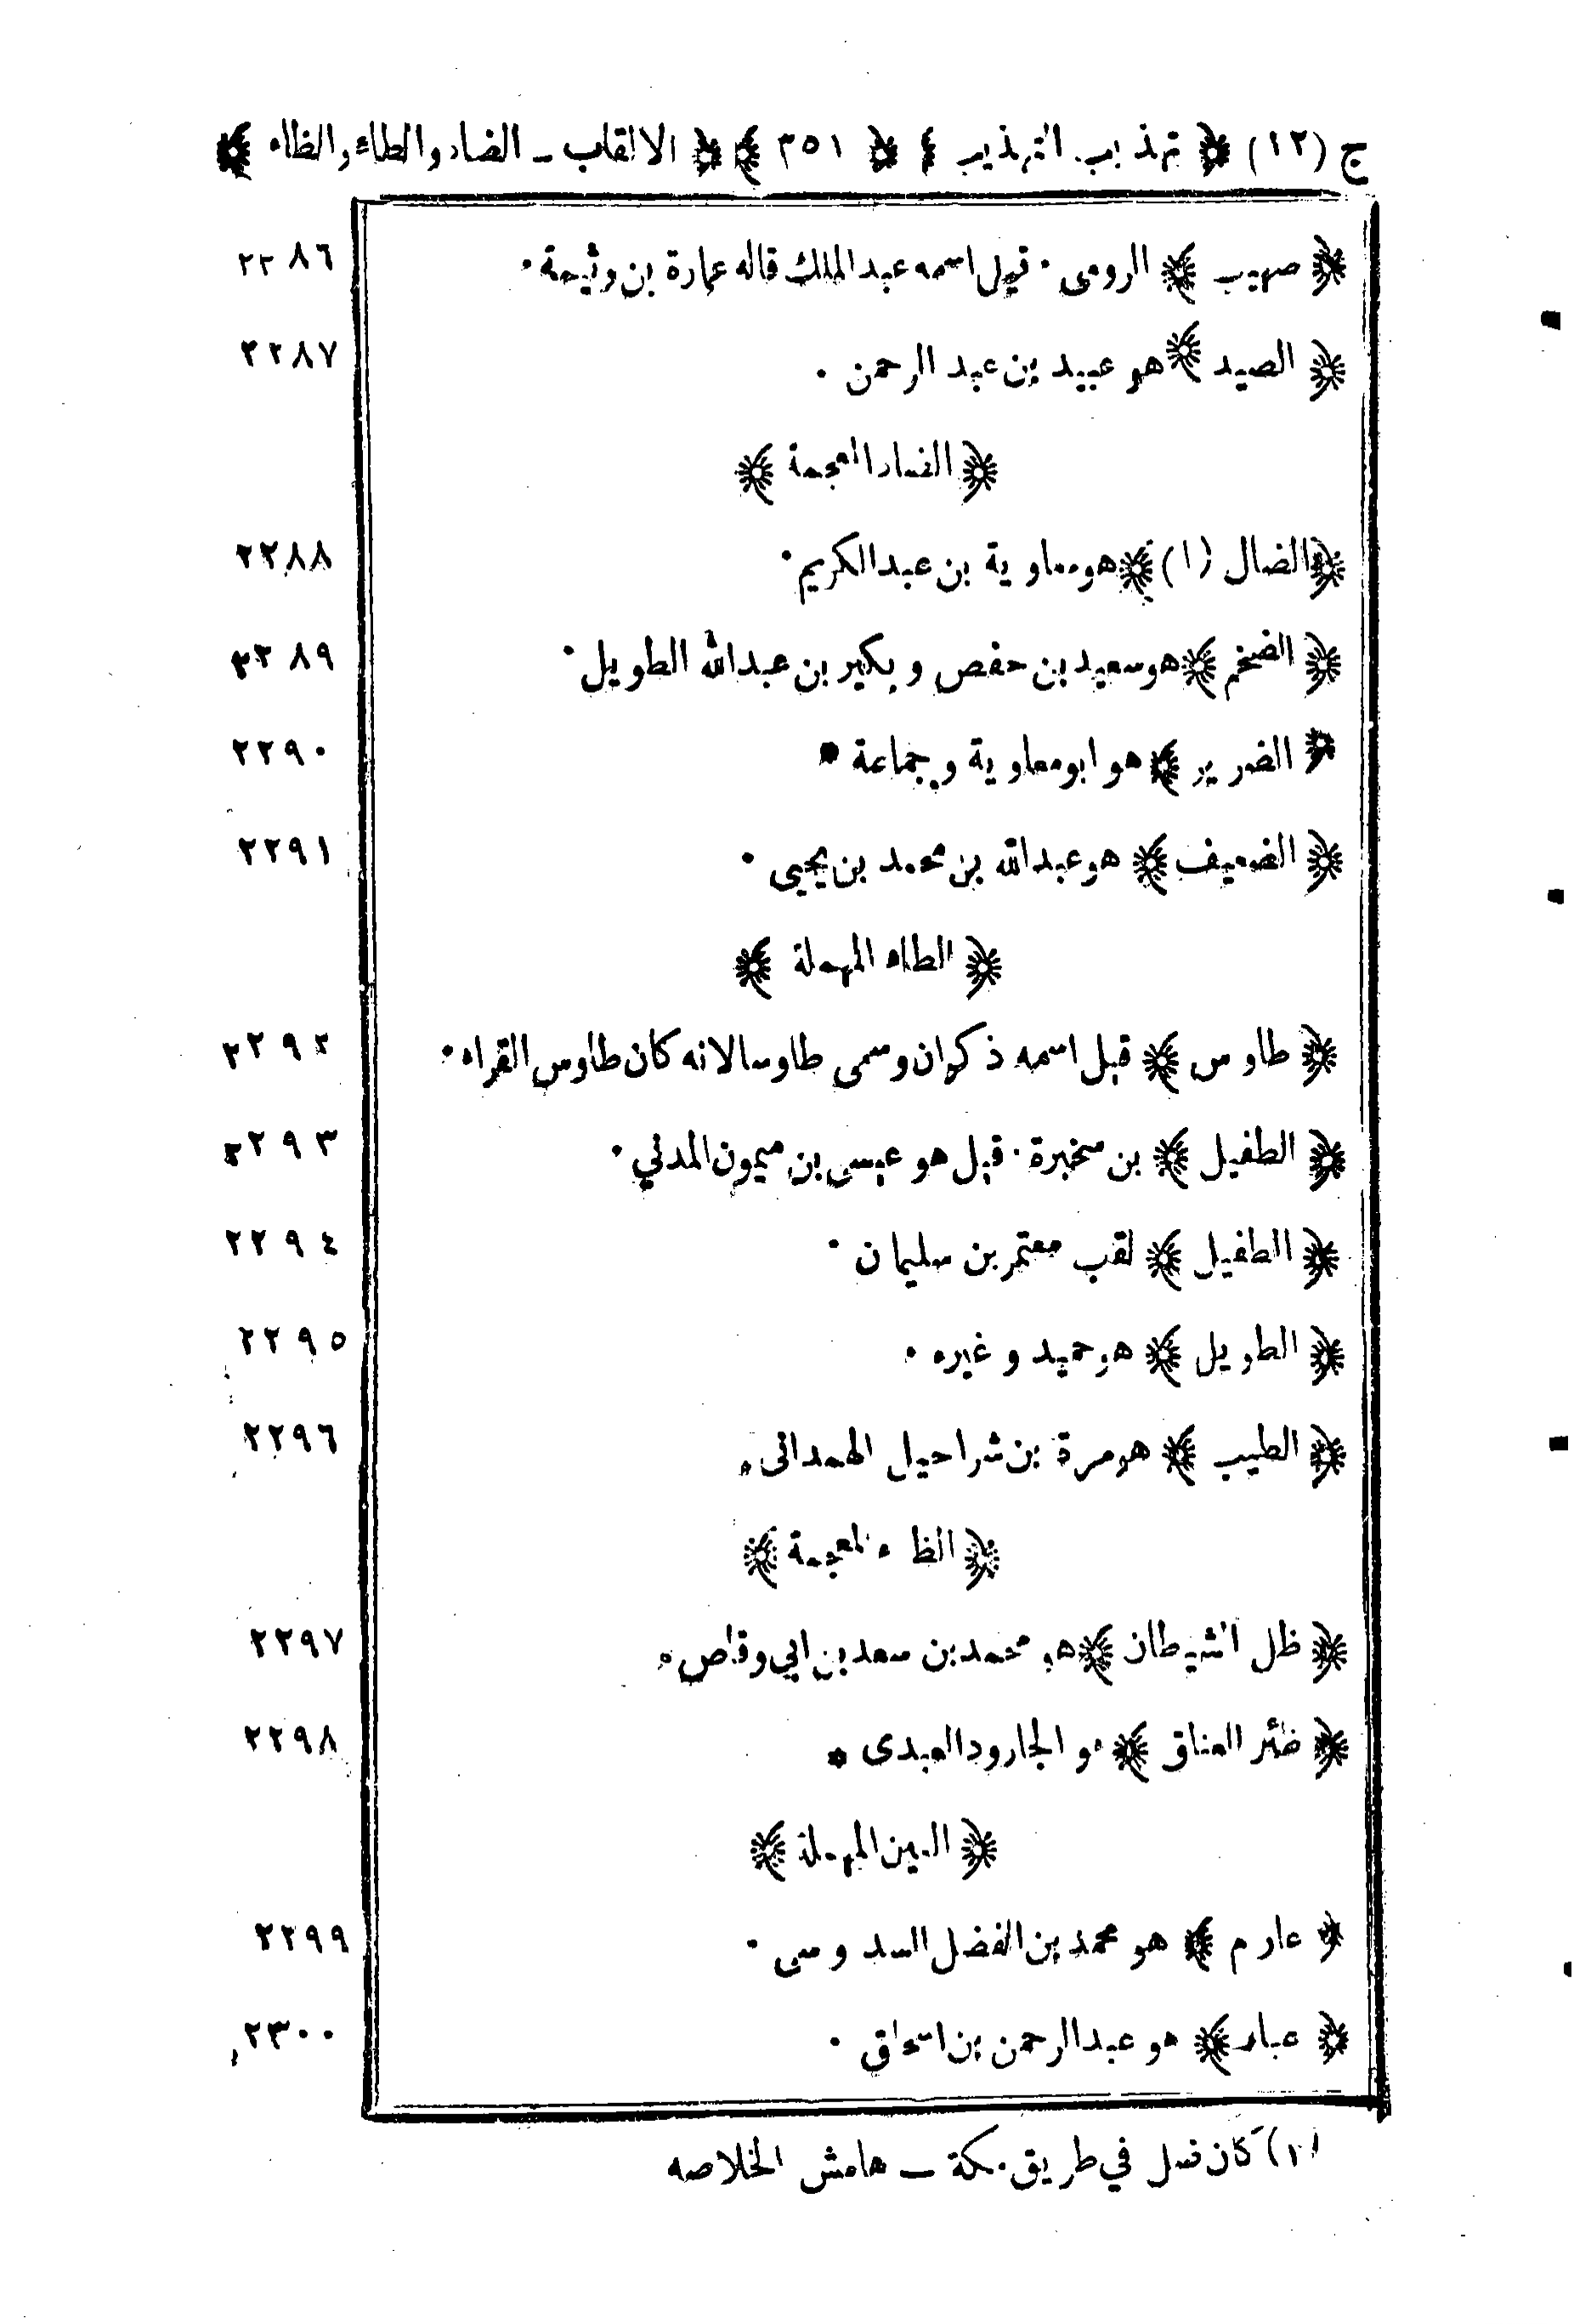 ج (١٢) ﴿ تهذيب التهذيب ﴾ ﴿ ٣٥١ ﴾ ﴿ الالقاب – الضاد والطاء والظاء ﴾
﴿ صهيب ﴾ الرومى · قيل اسمه عبد الملك قاله عمارة بن وثيمة · ٢٢٨٦
﴿ الصيد ﴾ هو عبيد بن عبد الرحمن · ٢٢٨٧
﴿ الضاد المعجمة ﴾
﴿ الضال (١) ﴾ هو معاوية بن عبد الكريم · ٢٢٨٨
﴿ الضخم ﴾ هو سعيد بن حفص وبكير بن عبدالله الطويل · ٢٢٨٩
﴿ الضرير ﴾ هو ابو معاوية وجماعة * ٢٢٩٠
﴿ الضعيف ﴾ هو عبدالله بن محمد بن يحيى · ٢٢٩١
﴿ الطاء المهملة ﴾
﴿ طاوس ﴾ قيل اسمه ذكوان وسمى طاوسا لانه كان طاوس القراء · ٢٢٩٢
﴿ الطفيل ﴾ بن سخبرة · قيل هو عيسى بن ميمون المدني · ٢٢٩٣
﴿ الطفيل ﴾ لقب معتمر بن سليمان · ٢٢٩٤
﴿ الطويل ﴾ هو حميد وغيره · ٢٢٩٥
﴿ الطيب ﴾ هو مرة بن شراحيل الهمدانى · ٢٢٩٦
﴿ الظاء المعجمة ﴾
﴿ ظل الشيطان ﴾ هو محمد بن سعد بن ابي وقاص · ٢٢٩٧
﴿ ظئر العناق ﴾ هو الجارود العبدى * ٢٢٩٨
﴿ العين المهملة ﴾
﴿ عارم ﴾ هو محمد بن الفضل السدوسى · ٢٢٩٩
﴿ عباد ﴾ هو عبد الرحمن بن اسحاق · ٢٣٠٠
(١) كان ضل في طريق مكة – هامش الخلاصه